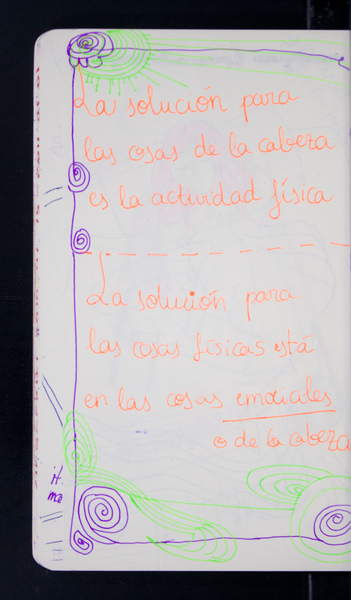 La solución para
las cosas de la cabeza
es la actividad física
La solución para
las cosas físicas está
en las cosas emociales
o de la cabeza